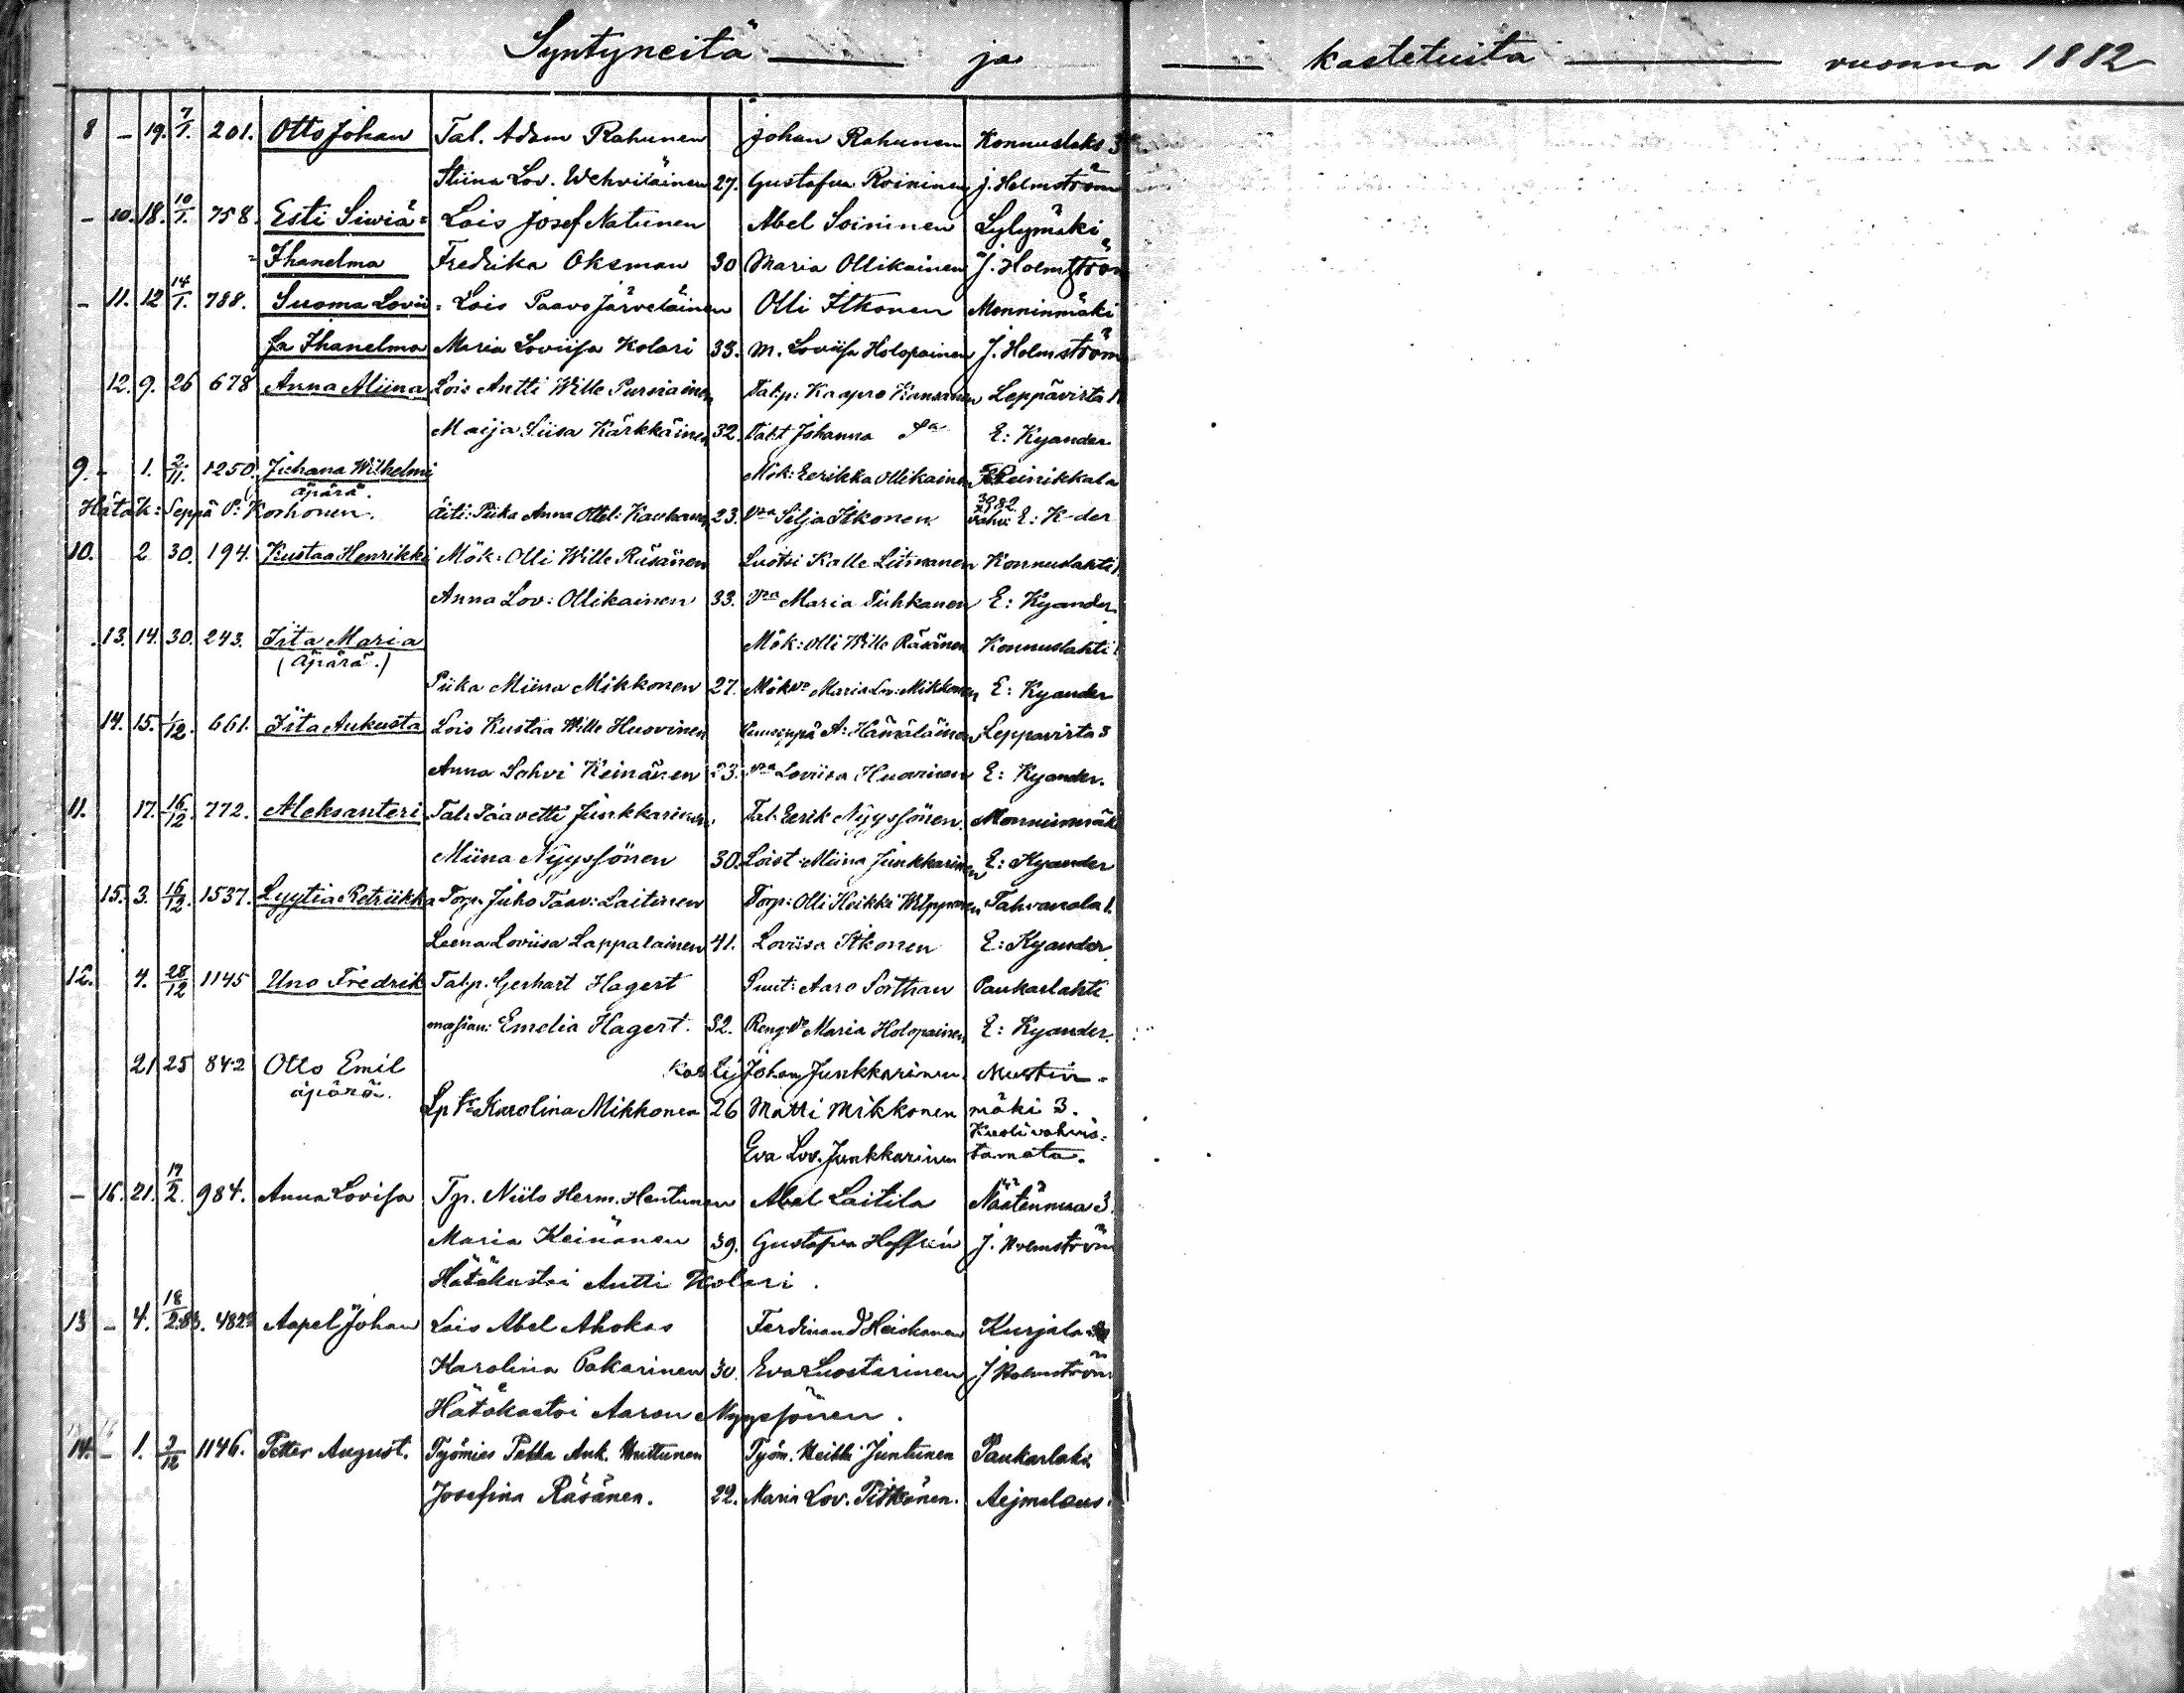 Syntyneitä ja kastetuita vuonna 1882
8 - 19. 7/1. 201. Otto Johan Tal. Adam Rahunen Johan Rahunen Konnuslaks 3
Stiina Lov. Wehviläinen 27. Gustafva Roininen J. Holmström
- 10. 18. 10/1. 758. Esti Siwiä= Lois Josef Natunen Abel Soininen Lylymäki
=Ihanelma Fredrika Oksman 30 Maria Ollikainen J. Holmström
- 11. 12 14/1. 788. Suoma Lovii= Lois Paavo Järveläinen Olli Itkonen Monninmäki
sa Ihanelma Maria Loviisa Kolari 33. M. Loviisa Holopainen J. Holmström
12. 9. 26 678 Anna Miina Lois Antti Wille Purviainen Talp: Kaapro Leppävirta 1
Maija Liisa Kärkkäinen 32. Johanna E: Kyander
9. - 1. 2/11. 1250. Juhana Wilhelmi Mök: Eerikka Ollikainen
äpärä.
Hätäk: Seppä P: Korhonen. äiti: Piika Anna Ottel: 23. Vmo Silja Itkonen. E: K-der
10. 2 30. 194. Kustaa Henrikki Mök: Olli Wille Räsänen Luotsi Kalle Litmanen Konnuslahti 1
Anna Lov: Ollikainen 33. Maria Tuhkanen E: Kyander.
13. 14. 30. 243. Iita Maria Mök: Olli Wille Räsänen Konnuslahti 1
(äpärä.)
Piika Miina Mikkonen 27. Maria Lov: Mikkonen E: Kyander
14. 15. 1/12. 661. Iita Aukusta Lois Kustaa Wille Huovinen A: Hämäläinen Leppavirta 3
Anna Sohvi Keinänen 23. Loviisa Huovinen E: Kyander.
11. 17. 16/12. 772. Aleksanteri Tal: Taavetti Junkkarinen Tal: Eerik Nyyssönen. Monninmäki
Miina Nyyssönen 30. Loist: Miina Junkkarinen E: Kyander
15. 3. 16/12. 1537. Lyytia Retriikka Torp. Juho Taav: Laitinen Torp: Olli Heikki Tahvanala 1.
Leena Loviisa Lappalainen 41. Loviisa Itkonen E: Kyander.
12. 4. 28/12 1145 Uno Fredrik Talp. Gerhart Hagert Aaro Paukarlahti
Emelia Hagert. 32. Maria Holopainen E: Kyander.
21 25 842 Otto Emil Johan Junkkarinen Mustin=
äpärä. Karolina Mikkonen 26 Matti Mikkonen mäki 3.
Kuoli vahvis=
Eva Lov. Junkkarinen tamata.
- 16. 21. 17/2. 984. Anna Lovisa Tp. Niilo Herm. Hentunen Abel Laitila Näätänmaa 3.
Maria Keinänen 39. Gustafva Hoffrén J. Holmström
Hätäkastoi Antti Kolari.
13 - 4. 18/2.83. 482 Aapel Johan Lois Abel Ahokas Ferdinand Heiskanen Kurjala
Karolina Pakarinen 30. Eva Luostarinen J Holmström
Hätäkastoi Aaron Nyyssönen.
14. - 1. 3/12 1146. Petter August. Työmies Pekka Auk. Huttunen Työm. Heikki Juntunen Paukarlaks
Josefina Räsänen. 22. Maria Lov. Pitkänen. Aejmelaeus.